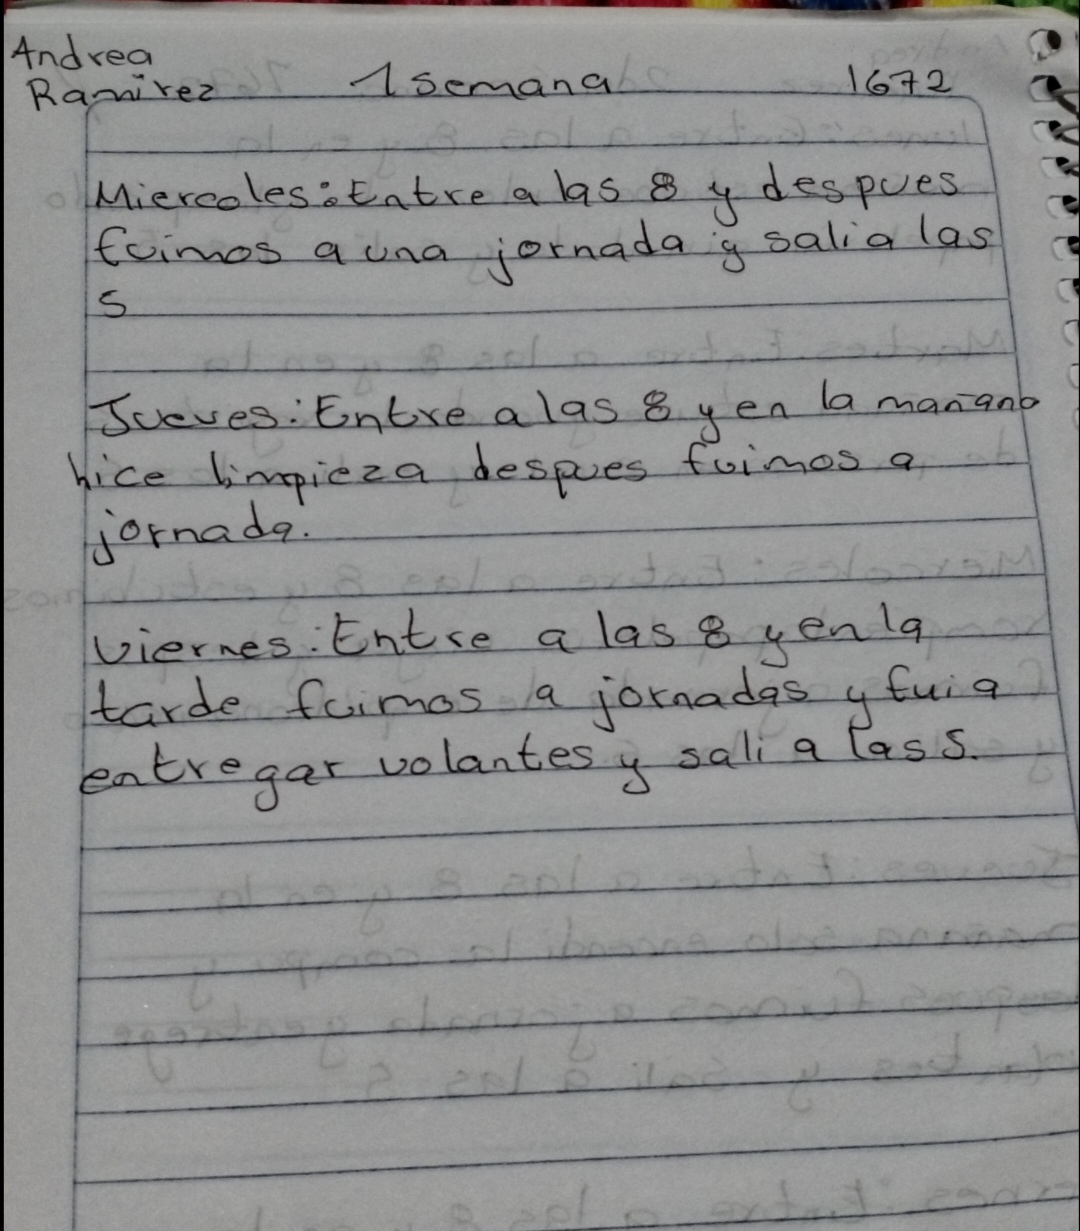 Andrea
Ramirez 1 semana 1672
Miercoles: Entre a las 8 y despues
fuimos a una jornada y sali a las
5
Jueves: Entre a las 8 y en la mañana
hice limpieza, despues fuimos a
jornada.
viernes: Entre a las 8 y en la
tarde fuimos a jornadas y fui a
entregar volantes y sali a las 5.